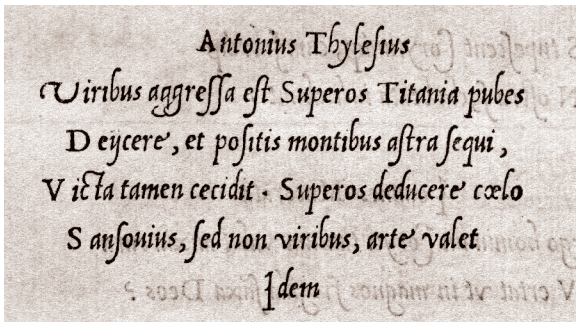 Antonius Thylesius
Viribus aggressa est Superos Titania pubes
Deijcere, et positis montibus astra sequi,
Victa tamen cecidit. Superos deducere cœlo
Sansovius, sed non viribus, arte valet
Idem